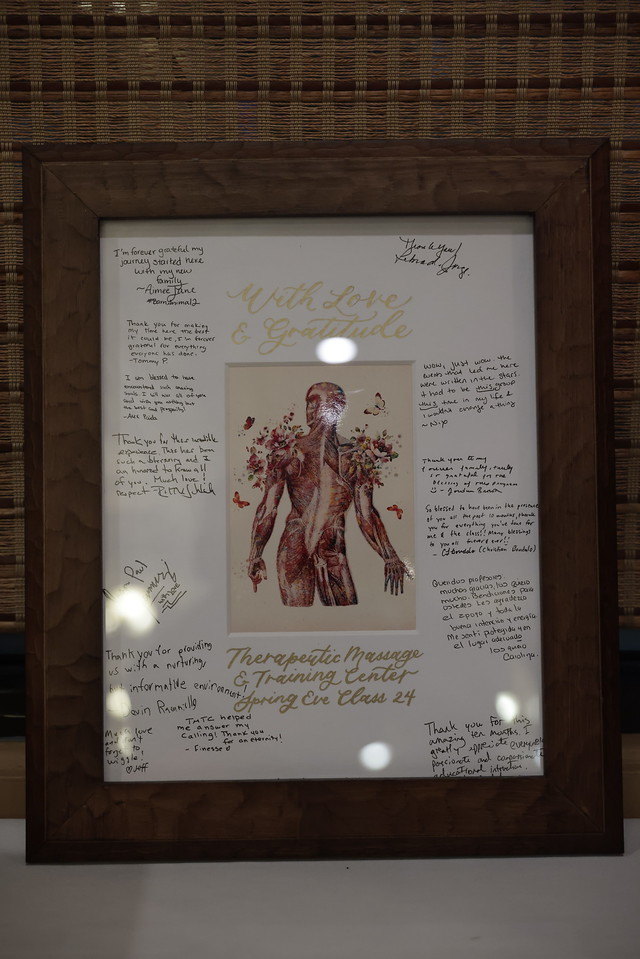 With Love
& Gratitude
Therapeutic Massage
& Training Center
Spring Eve Class 24
I'm forever grateful my
journey started here
with my new
family
~Aimee Jane
Thank you for making
my time here the best
it could be, I'm forever
grateful for everything
everyone has done.
-Tommy P.
I am blessed to have
encountered such amazing
hands. I will miss all of you
and wish you nothing but
the best and prosperity
-Alex
Thank you for this incredible
experience. This has been
such a blessing and I
am honored to know all
of you. Much love!
respect
with love
Thank you for providing
us with a nurturing,
informative environment!
Much love
don't
forget to
wiggle!
Jeff
TMTC helped
me answer my
Calling! Thank you
for an eternity!
- Finesse
Thank you!
Wow, just wow. The
events that led me here
were written in the stars.
it had to be this group
this time in my life I
wouldn't change a thing
Thank you to my
forever family, really
so grateful for the
blessing of this program
- Jordan
So blessed to have been in the presence
of you all the past 10 months, thank
you for everything you've done for
me & the class!! Many blessings
to you all forever & ever!!
(Christian
Queridos profesores
muchas gracias, los quiero
mucho. Bendiciones para
ustedes les agradezco
el apoyo y toda la
buena intención y energía
Me sentí protegida y en
el lugar adecuado
los quiero
Carolina.
Thank you for this
amazing ten months. I
greatly appreciate everyone's
passionate and compassionate
educational